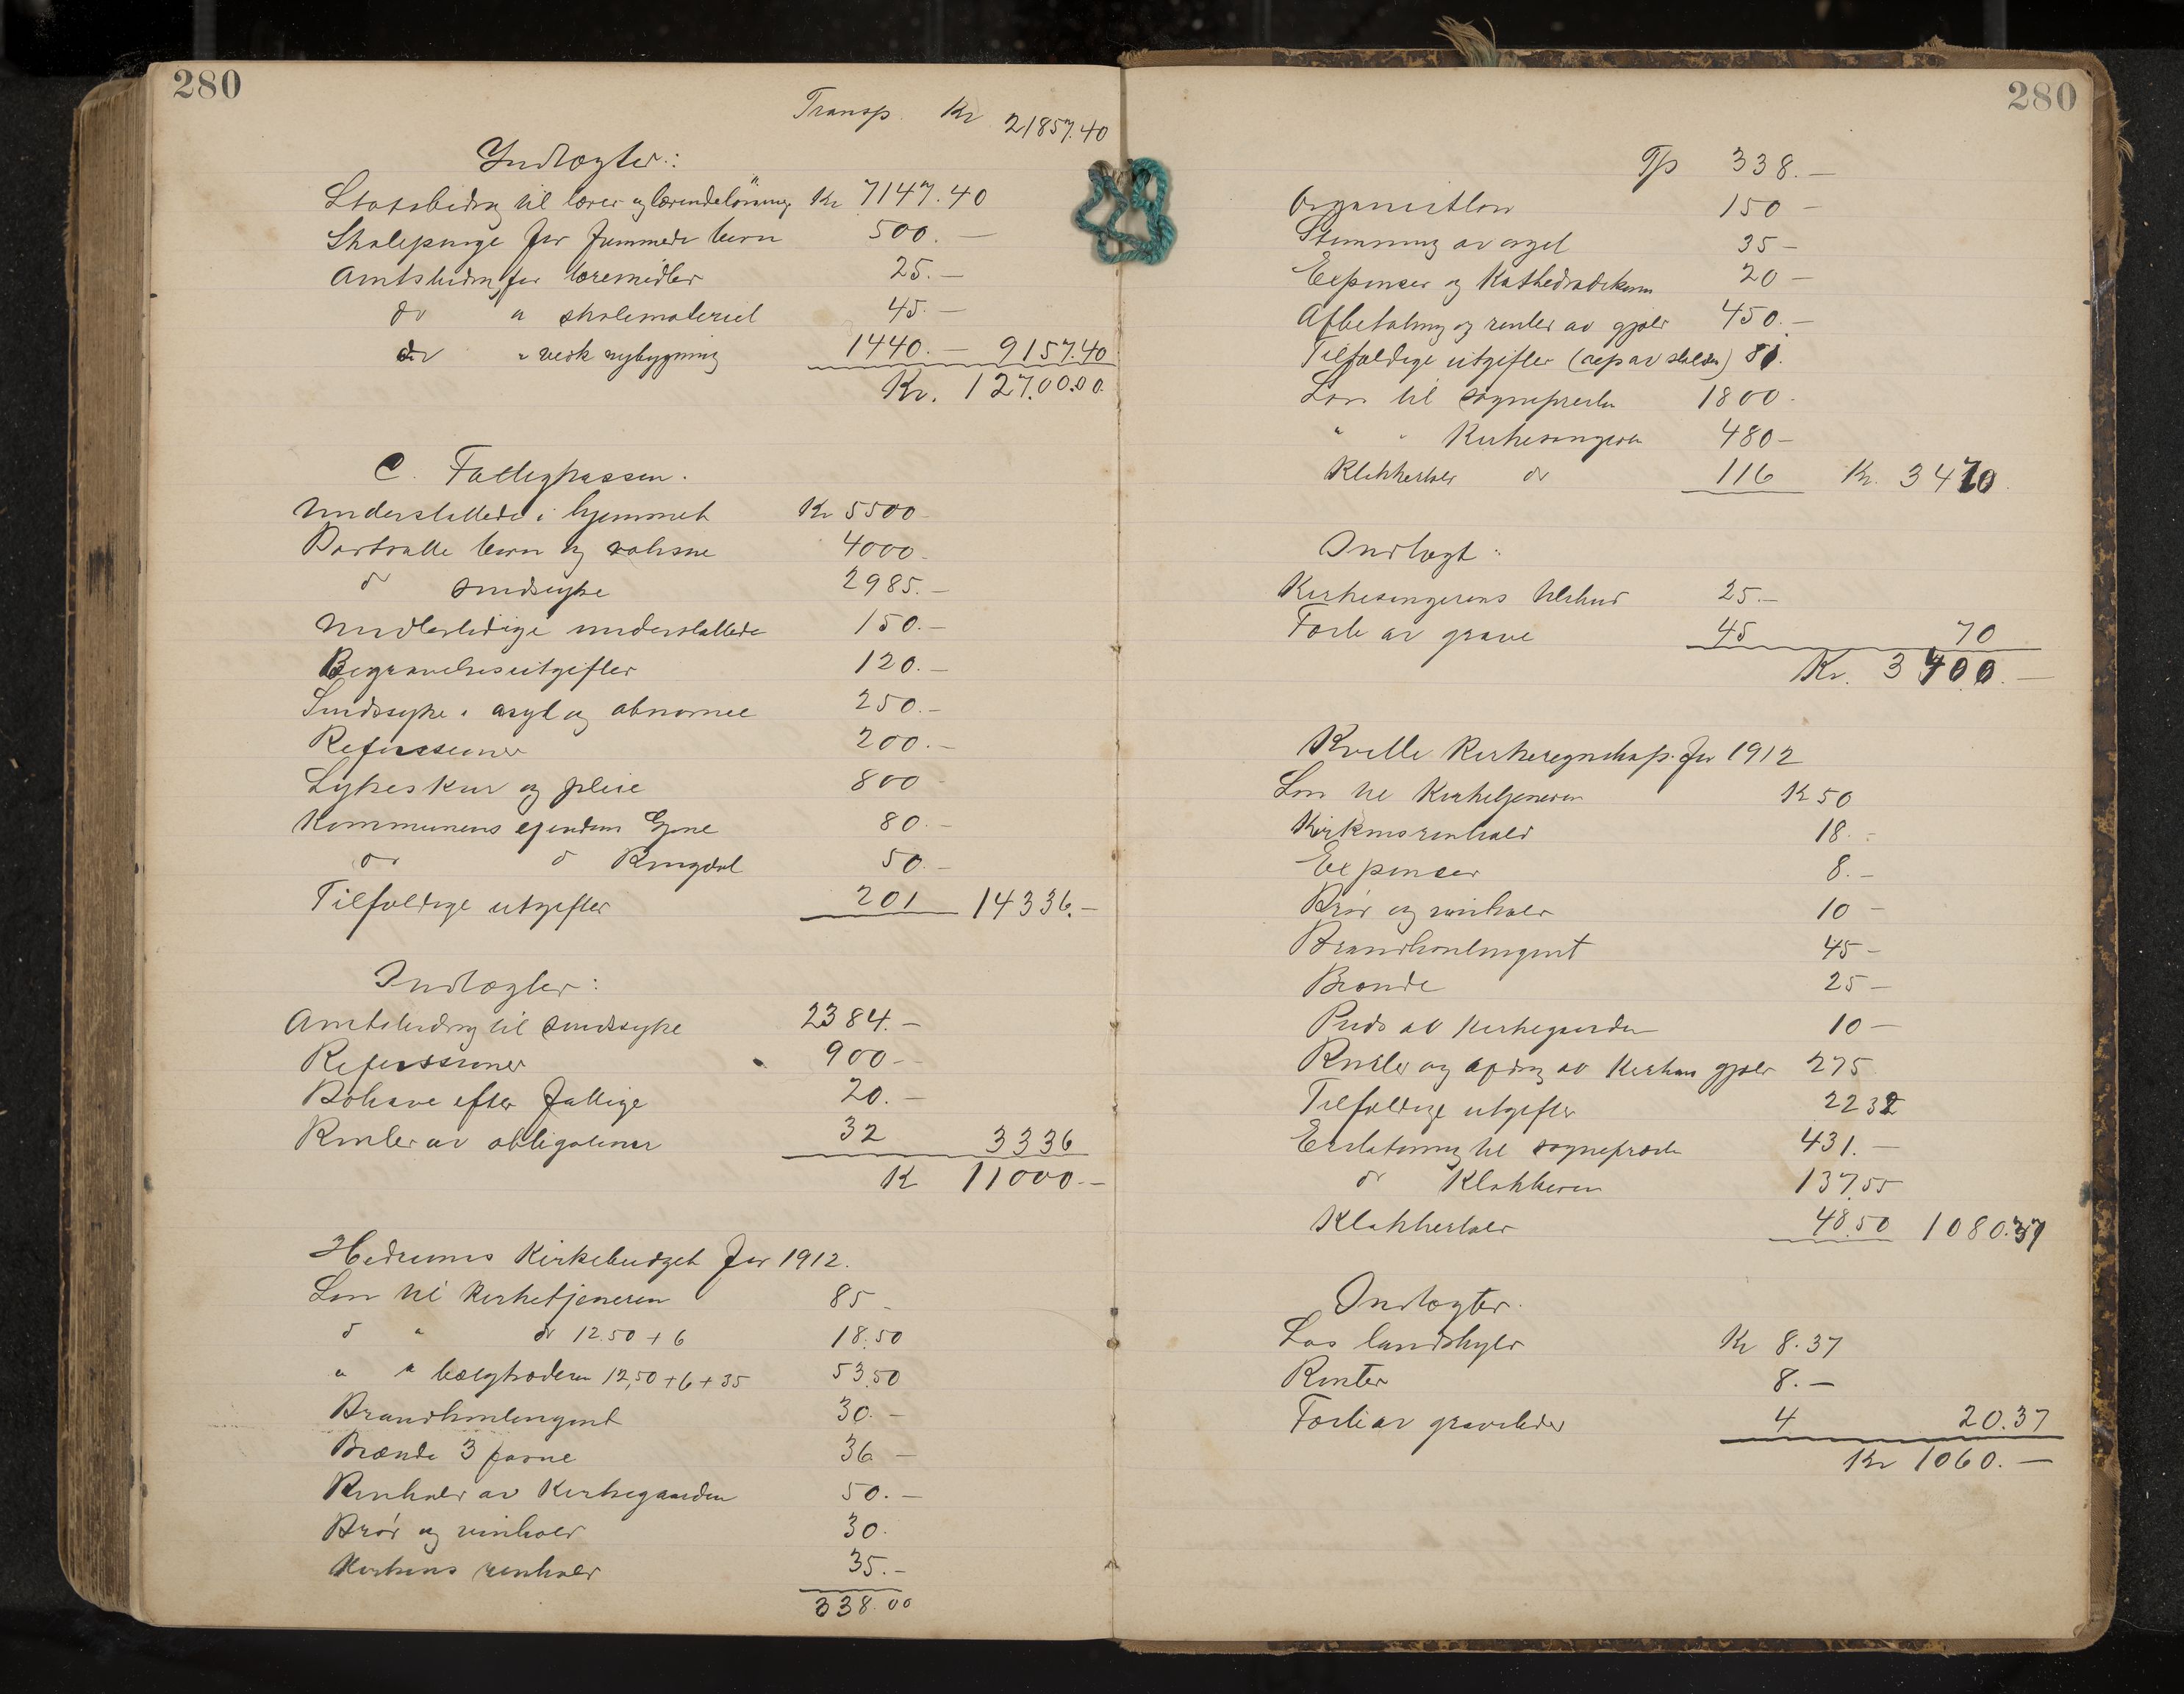 280
Transp. Kr 21857.40
Indtægter:
Statsbidrag til lærer og lærerindelønning Kr 7147.40
Skolepenge for fremmede børn 500.—
Amtsbidrag for læremidler 25.—
do " skolemateriel 45.—
do " verk nybygning 1440.— 9157.40
Kr. 12700.00
C. Fattigkassen.
Understøttede i hjemmet Kr 5500
Bortsatte børn og voksne 4000
d sindssyke 2985.—
Midlertidige understøttede 150.—
Begravelsesutgifter 120.—
Sindssyke i asyl og abnorme 250.—
Refussioner 200.—
Sykes kur og pleie 800
Kommunens ejendom Gjone 80.—
do d Ringdal 50.—
Tilfældige utgifter 201 14336.—
Indtægter:
Amtsbidrag til sindssyke 2384.—
Refussioner 900—
Bohave efter fattige 20.—
Renter av obligationer 32 3336
Kr 11000.—
Hedrums Kirkebudget for 1912.
Løn til Kirketjeneren 85—
d " do 12.50 + 6 18.50
" " bælgtræderen 12,50 + 6 + 35 53.50
Brandkontingent 30.—
Brænde 3 favne 36—
Renhold av Kirkegaarden 50.—
Brød og vinhold 30.
Kirkens renhold 35.—
338.00
280
Tp 338.—
Organistløn 150—
Stemning av orgel 35—
Expenser og Kathedradskum 20—
Afbetaling og renter av gjæld 450.—
Tilfældige utgifter (rep av stolen) 81.
Løn til sognepresten 1800.
" " Kirkesangeren 480—
Klokkertold do 116 Kr. 3470
Indtægt:
Kirkesangerens tilskud 25.—
Fæste av grave 45 70
Kr. 3400.—
Kvelle Kirkeregnskap for 1912
Løn til Kirketjeneren Kr 50
Kirkens renhold 18.—
Expenser 8.—
Brød og vinhold 10—
Brandkontingent 45—
Brænde 25—
Puds av Kirkegaarden 10—
Renter og afdrag av Kirkens gjæld 275
Tilfældige utgifter 2232
Erstatning til sognepresten 431.—
d Klokkeren 137.55
Klokkertold 48.50 1080.37
Indtægter.
Løs landskyld Kr 8.37
Renter 8.—
Fæste av gravsteder 4 20.37
Kr 1060.—